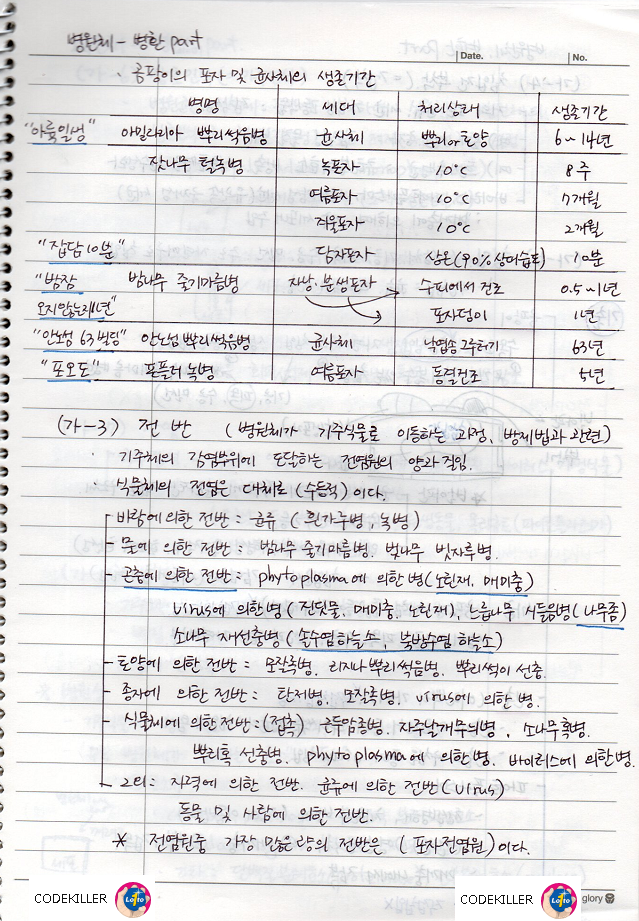 병원체 - 병환 part
Date. No.
· 곰팡이의 포자 및 균사체의 생존기간
병명 세대 처리상태 생존기간
"아륙일생" 아밀라리아 뿌리썩음병 균사체 뿌리or토양 6~14년
잣나무 털녹병 녹포자 10°C 8주
여름포자 10°C 7개월
겨울포자 10°C 2개월
"잡담10분" 담자포자 상온(90% 상대습도) 10분
"밤잠 밤나무 줄기마름병 자낭·분생포자 수피에서 건조 0.5~1년
오지않는래1년" 포자덩이 1년
"안노섬 63빌딩" 안노섬뿌리썩음병 균사체 낙엽송 그루터기 63년
"포오도" 포플러 녹병 여름포자 동결건조 5년
(가-3) 전반 (병원체가 기주식물로 이동하는 과정, 방제법과 관련)
· 기주체의 감염부위에 도달하는 전염원의 양과 직임.
· 식물체의 전염은 대체로 (수동적)이다.
- 바람에 의한 전반 : 균류 (흰가루병, 녹병)
- 물에 의한 전반 : 밤나무 줄기마름병. 벚나무 빗자루병.
- 곤충에 의한 전반 : phytoplasma에 의한 병(노린재, 매미충)
virus에 의한병 (진딧물, 매미충, 노린재), 느릅나무 시들음병 (나무좀)
소나무 재선충병 (솔수염하늘소, 북방수염 하늘소)
- 토양에 의한 전반 : 모잘록병. 리지나뿌리썩음병. 뿌리썩이 선충.
- 종자에 의한 전반 : 탄저병. 모잘록병. virus에 의한 병.
- 식물체에 의한 전반 : (접촉) 근두암종병. 자주날개무늬병, 소나무혹병.
뿌리혹 선충병. phytoplasma에 의한병. 바이러스에 의한병.
- 그외 : 자력에 의한 전반. 균류에 의한 전반 (virus)
동물 및 사람에 의한 전반.
* 전염원중 가장 많은 량의 전반은 (포자전염원)이다.
glory
CODEKILLER Lotto CODEKILLER Lotto